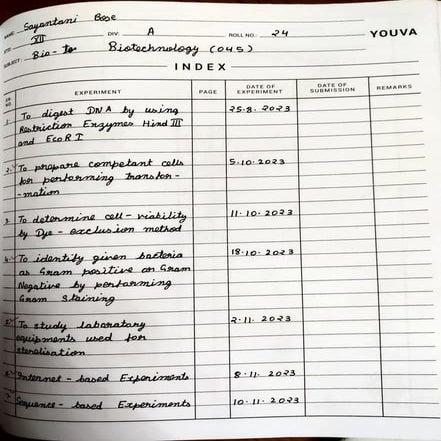 NAME: Sayantani Bose
STD.: XII DIV: A ROLL NO.: 24 YOUVA
SUBJECT: Bio-to Biotechnology (045)
INDEX
SR. NO. EXPERIMENT PAGE DATE OF EXPERIMENT DATE OF SUBMISSION REMARKS
1. To digest DNA by using 25.8.2023
Restriction Enzymes Hind III
and EcoR I
2. To prepare competant cells 5.10.2023
for performing transfor-
-mation
3. To determine cell-viability 11.10.2023
by Dye-exclusion method
4. To identify given bacteria 18.10.2023
as Gram positive or Gram
Negative by performing
Gram Staining
5. To study laboratary 2.11.2023
equipments used for
sterelisation
6. Internet-based Experiments 8.11.2023
7. Sequence-based Experiments 10.11.2023